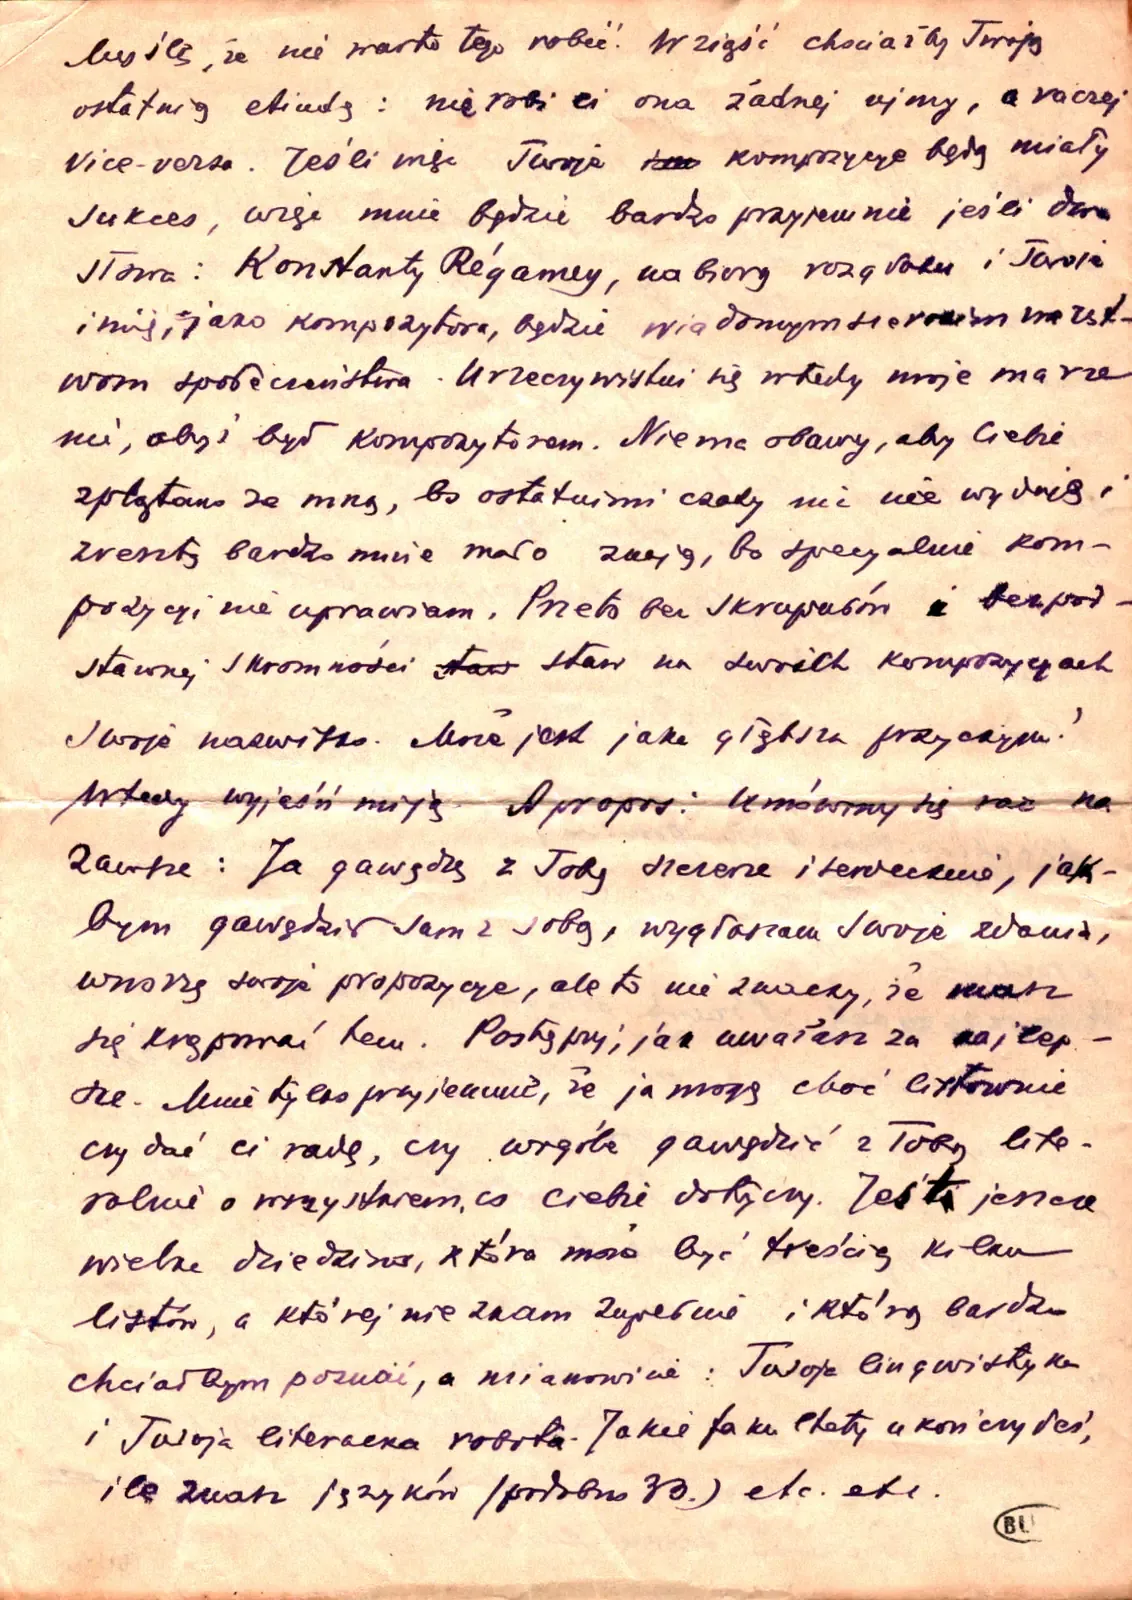 Myślę, że nie warto tego robić! Wziąść chociażby Twoją
ostatnią etiudę: nie robi ci ona żadnej ujmy, a raczej
vice-versa. Jeśli więc Twoje kompozycye będą miały
sukces, więc mnie będzie bardzo przyjemnie jeśli dwa
słowa: Konstanty Régamey, nabiorą rozgłosu i Twoje
imię, jako kompozytora, będzie wiadomym szerokim warst-
wom społeczeństwa. Urzeczywistni się wtedy moje marze
nie, abyś był kompozytorem. Niema obawy, aby Ciebie
splątano ze mną, bo ostatnimi czasy nic nie wydaję i
zresztą bardzo mnie mało znają, bo specyalnie kom-
pozycyi nie uprawiam. Przeto bez skrupułów i bezpod-
stawnej skromności staw na swoich kompozycyach
swoje nazwisko. Może jest jaka głębsza przyczyna?
Wtedy wyjaśń mi ją. A propos: Umówmy się raz na
zawsze: Ja gawędzę z Tobą szczerze i serdecznie, jak-
bym gawędził sam z sobą, wygłaszam swoje zdania,
wnoszę swoje propozycye, ale to nie znaczy, że masz
się krępować tem. Postępuj, jak uważasz za najlep-
sze. Mnie tylko przyjemnie, że ja mogę choć listownie
czy dać ci radę, czy wogóle gawędzić z Tobą lite-
ralnie o wszystkiem, co ciebie dotyczy. Jest jeszcze
wielka dziedzina, która może być treścią kilku
listów, a której nie znam zupełnie i którą bardzo
chciałbym poznać, a mianowicie: Twoja lingwistyka
i Twoja literacka robota. Jakie fakultety ukończyłeś,
ile znasz języków (podobno 30.) etc. etc.
BU